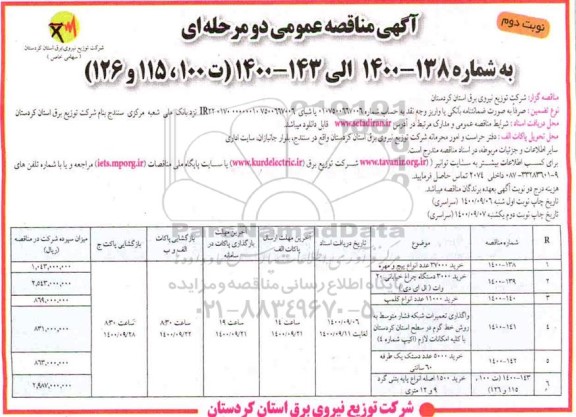 نوبت دوم
آگهی مناقصه عمومی دو مرحله‌ای
به شماره ۱۳۸-۱۴۰۰ الی ۱۴۳-۱۴۰۰ (ت ۱۰۰، ۱۱۵ و ۱۲۶)
شرکت توزیع نیروی برق استان کردستان
(سهامی خاص)
مناقصه گزار: شرکت توزیع نیروی برق استان کردستان
نوع تضمین: صرفاً به صورت ضمانتنامه بانکی یا واریز وجه نقد به حساب شماره ۰۱۰۷۵۰۰۶۶۷۰۰۶ با شبای نزد بانک ملی شعبه مرکزی سنندج بنام شرکت توزیع برق استان کردستان
محل دریافت اسناد: شرایط مناقصه عمومی و مدارک مرتبط در آدرس www.setadiran.ir قابل دانلود میباشد.
محل تحویل پاکات الف: دفتر حراست و امور محرمانه شرکت توزیع برق استان کردستان واقع در سنندج، بلوار جانبازان، سایت اداری
سایر اطلاعات و جزئیات مربوطه در اسناد مناقصه مندرج است.
برای کسب اطلاعات بیشتر به سایت توانیر (www.tavanir.org.ir) شرکت توزیع برق (www.kurdelectric.ir) یا سایت پایگاه ملی مناقصات (iets.mporg.ir) مراجعه و یا با شماره تلفن های
۹-۰۸۷-۳۳۲۸۳۶۰۱ داخلی ۲۰۷۴ تماس حاصل فرمایید.
هزینه درج دو نوبت آگهی بعهده برندگان مناقصه میباشد
تاریخ چاپ نوبت اول شنبه ۱۴۰۰/۰۹/۰۶ (سراسری)
تاریخ چاپ نوبت دوم یکشنبه ۱۴۰۰/۰۹/۰۷ (سراسری)
R شماره مناقصه موضوع تاریخ دریافت اسناد آخرین مهلت ارسال پاکات الف آخرین مهلت بارگذاری پاکات در سامانه بازگشایی پاکات الف و ب بازگشایی پاکت ج میزان سپرده شرکت در مناقصه (ریال)
۱ ۱۳۸-۱۴۰۰ خرید ۳۷۰۰۰ عدد انواع پیچ و مهره ۱,۰۴۳,۰۰۰,۰۰۰
۲ ۱۳۹-۱۴۰۰ خرید ۳۰۰۰ دستگاه چراغ خیابانی ۲۰ وات (ال ای دی) ۲,۵۴۳,۰۰۰,۰۰۰
۳ ۱۴۰-۱۴۰۰ خرید ۱۱۰۰۰ عدد انواع کلمپ ۸۶۹,۰۰۰,۰۰۰
۴ ۱۴۱-۱۴۰۰ واگذاری تعمیرات شبکه فشار متوسط به روش خط گرم در سطح استان کردستان با کلیه امکانات لازم (اکیپ شماره ۴) ۸۳۱,۰۰۰,۰۰۰
۱۴۰۰/۰۹/۰۶ لغایت ۱۴۰۰/۰۹/۱۱ ساعت ۱۴ ۱۴۰۰/۰۹/۲۱ ساعت ۱۹ ۱۴۰۰/۰۹/۲۱ ساعت ۸:۳۰ ۱۴۰۰/۰۹/۲۲ ساعت ۸:۳۰ ۱۴۰۰/۰۹/۲۸
۵ ۱۴۲-۱۴۰۰ خرید ۵۰۰۰ عدد دستک یک طرفه ۶۰ سانتی ۸۶۳,۰۰۰,۰۰۰
۶ ۱۴۳-۱۴۰۰ (ت ۱۰۰، ۱۱۵ و ۱۲۶) خرید ۱۵۰۰ اصله انواع پایه بتنی گرد ۹ و ۱۲ متری ۲,۹۸۷,۰۰۰,۰۰۰
ParsNamadData
پایگاه اطلاع رسانی مناقصه و مزایده
۰۲۱-۸۸۳۴۹۶۷۰-۵
شرکت توزیع نیروی برق استان کردستان